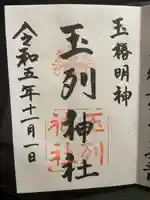 玉椿明神
玉列神社
令和五年十一月一日
玉列
神社